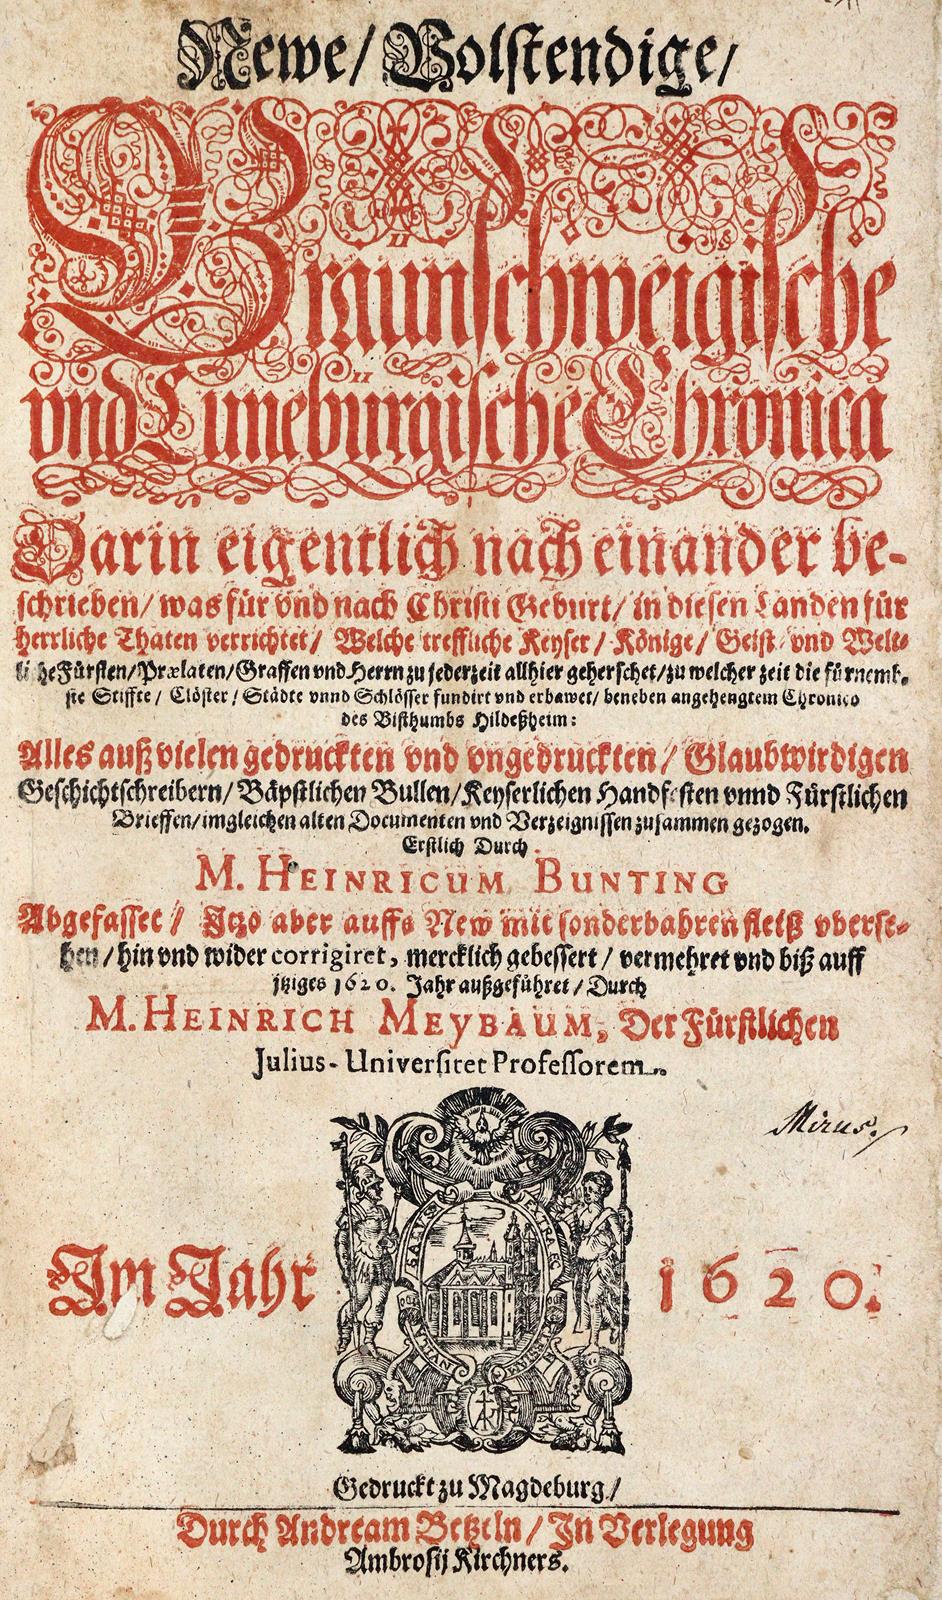 Newe/ Volſtendige/
Braunſchweigiſche
vnd Lüneburgiſche Chronica
Darin eigentlich nach einander be-
ſchrieben/ was für vnd nach Chriſti Geburt/ in dieſen Landen für
herrliche Thaten verrichtet/ Welche treffliche Keyſer/ Könige/ Geiſt- vnd Welt-
liche Fürſten/ Prælaten/ Graffen vnd Herrn zu jederzeit allhier geherſchet/ zu welcher zeit die fürnemb-
ſte Stiffte/ Clöſter/ Städte vnnd Schlöſſer fundirt vnd erbawet/ beneben angehengtem Chronico
des Biſthumbs Hildeßheim:
Alles auß vielen gedruckten vnd vngedruckten/ Glaubwirdigen
Geſchichtſchreibern/ Bäpſtlichen Bullen/ Keyſerlichen Handfeſten vnnd Fürſtlichen
Brieffen/ imgleichen alten Documenten vnd Verzeigniſſen zuſammen gezogen.
Erſtlich Durch
M. HEINRICUM BUNTING
Abgefaſſet/ Jtzo aber auffs New mit ſonderbahren fleiß vberſe-
hen/ hin vnd wider corrigiret, mercklich gebeſſert/ vermehret vnd biß auff
jtziges 1620. Jahr außgeführet/ Durch
M. HEINRICH MEYBAUM, Der Fürſtlichen
Julius-Univerſitet Profeſſorem.
Mirus.
SALVS EXTRA ECC
Jm Jahr 1620.
Gedruckt zu Magdeburg/
Durch Andream Betzeln/ Jn Verlegung
Ambroſij Kirchners.